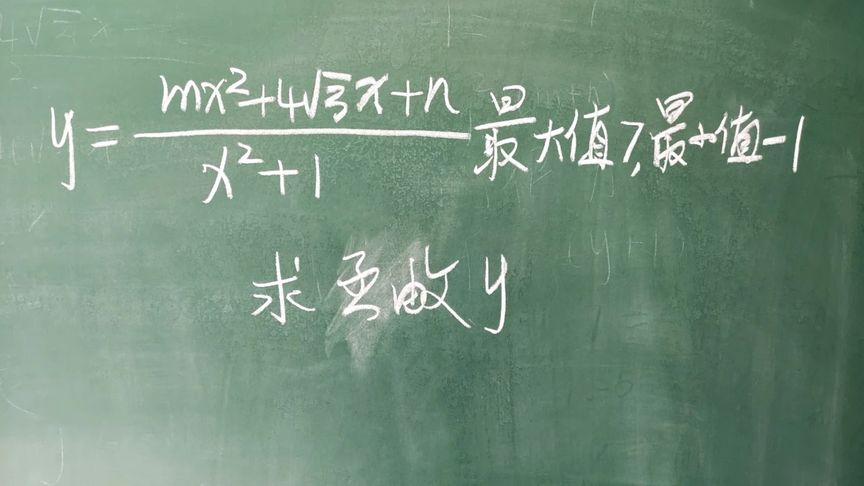 y = \frac{mx²+4√3x+n}{x²+1} 最大值7,最小值-1
求函数y